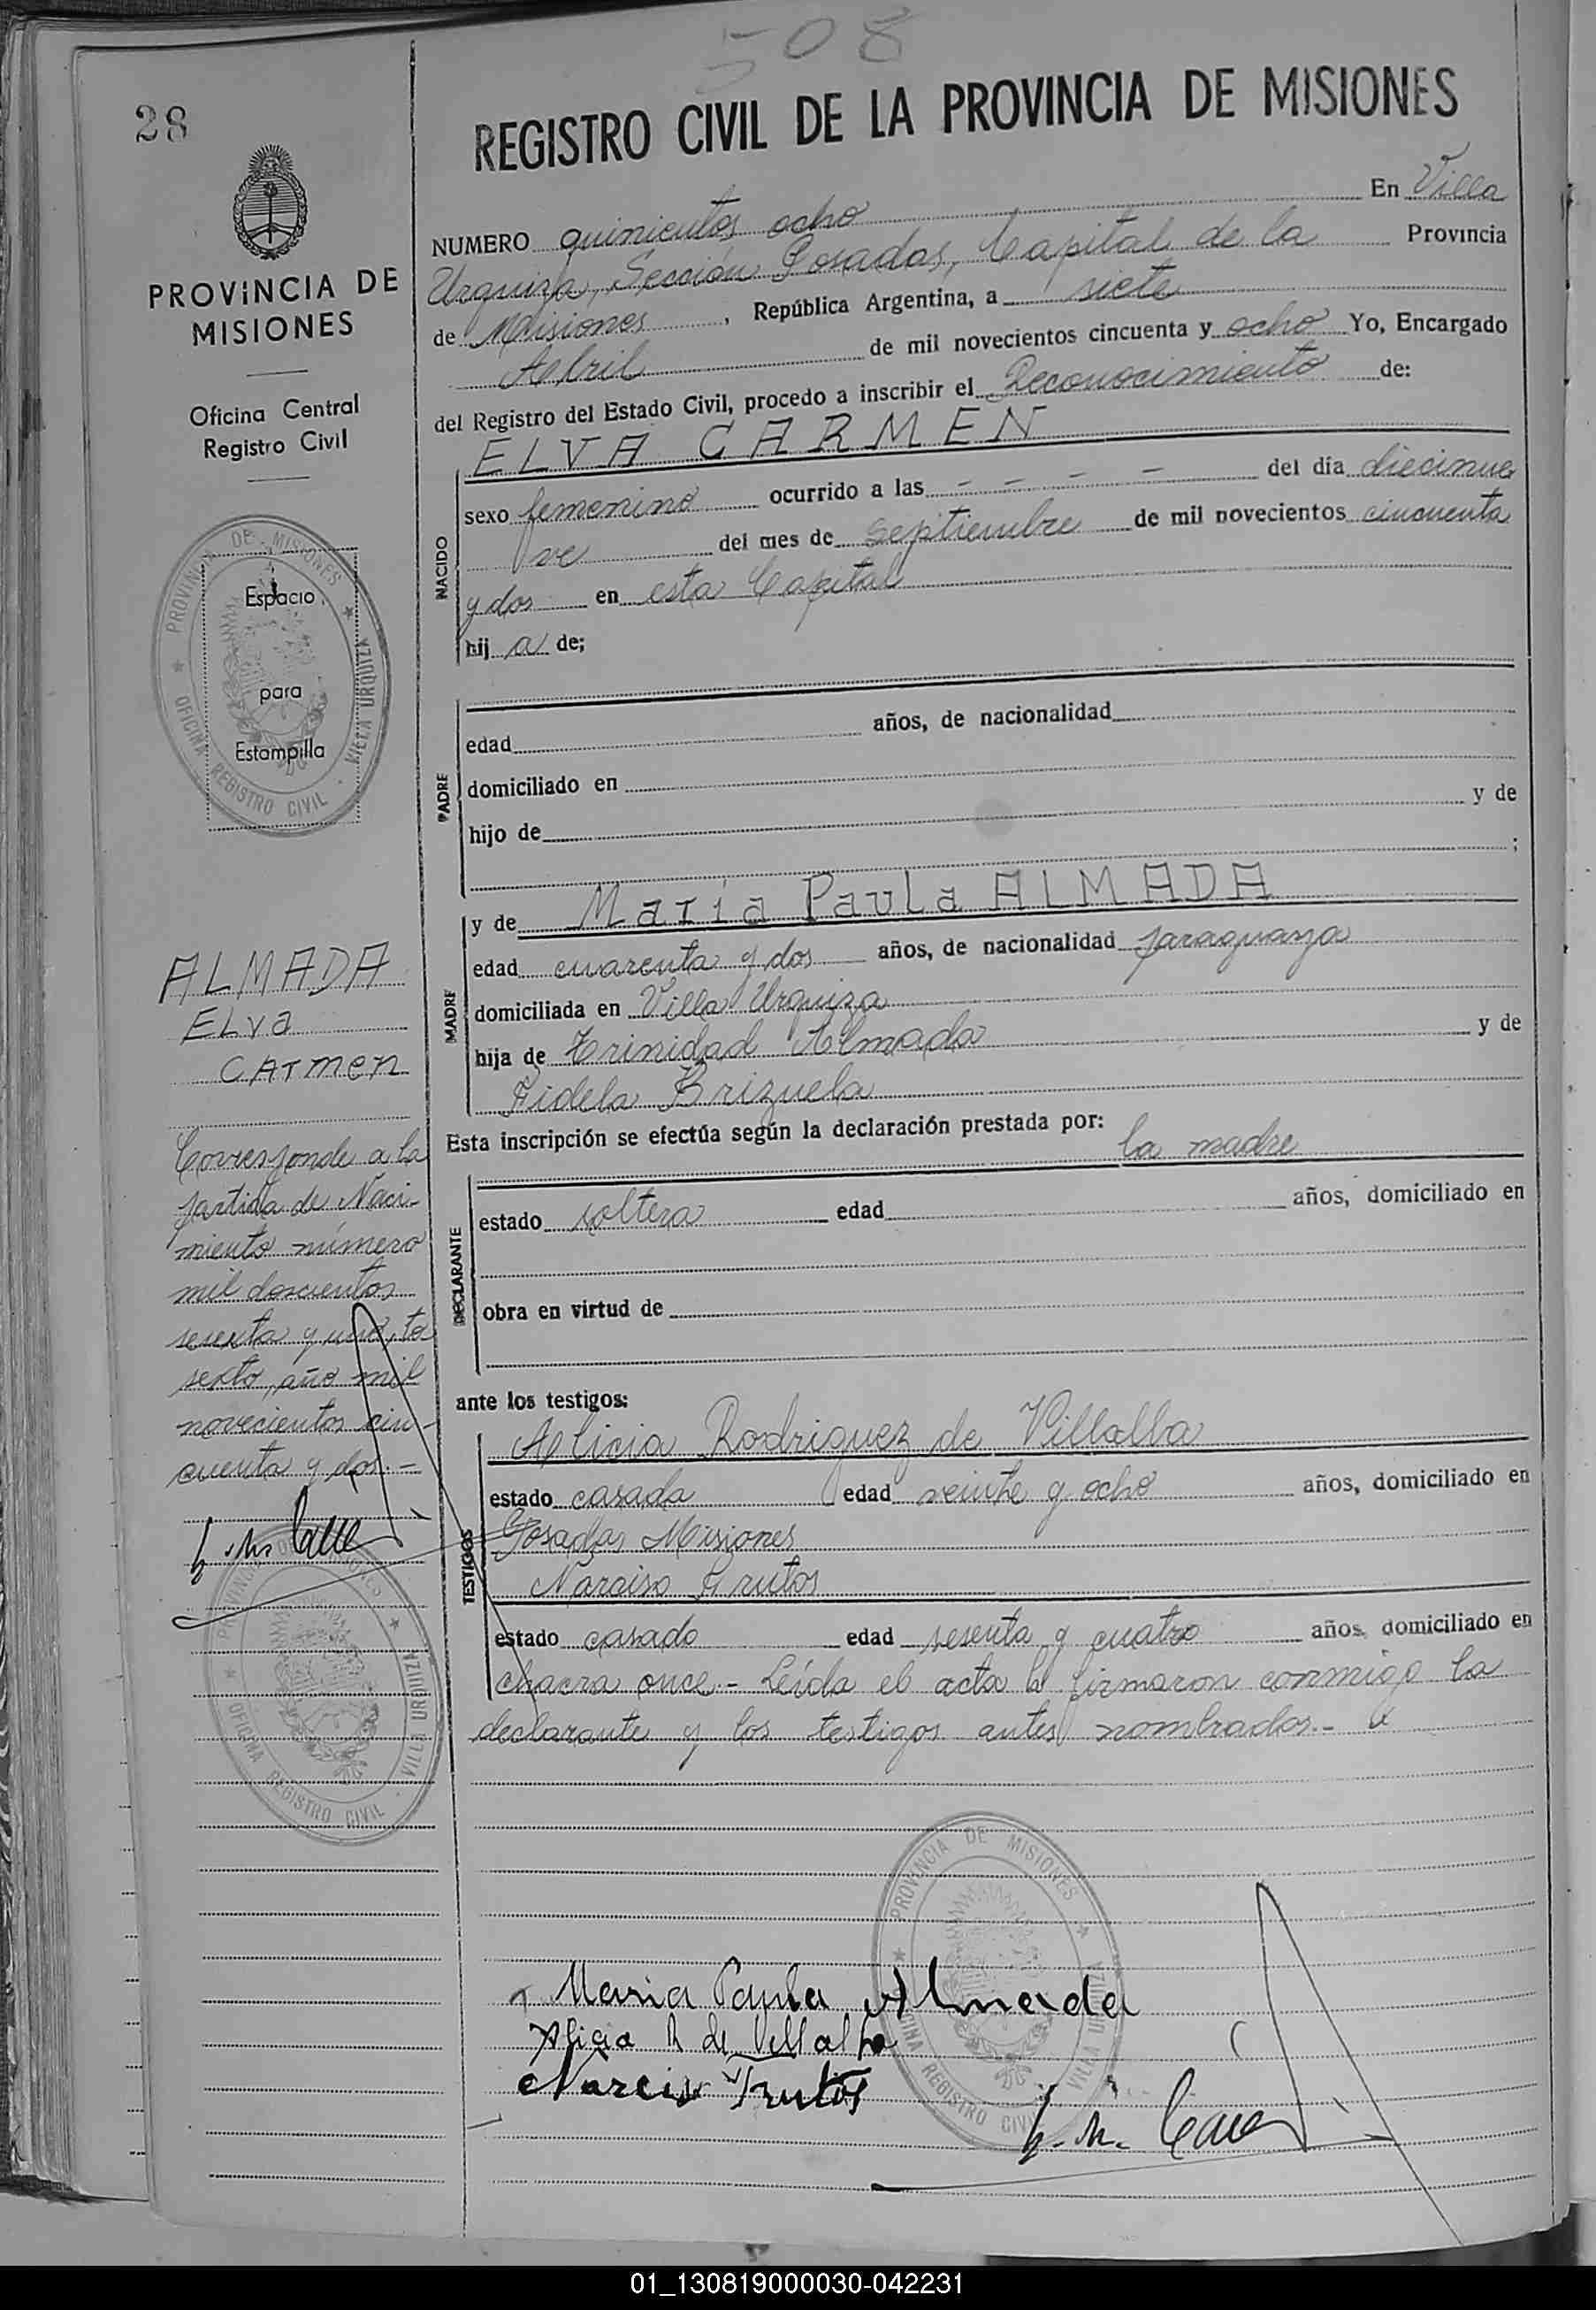 508
28
REGISTRO CIVIL DE LA PROVINCIA DE MISIONES
PROVINCIA DE
MISIONES
Oficina Central
Registro Civil
PROVINCIA DE MISIONES
OFICINA REGISTRO CIVIL - VILLA URQUIZA
Espacio
para
Estampilla
NUMERO quinientos ocho En Villa
Urquiza, Sección Posadas, Capital de la Provincia
de Misiones, República Argentina, a siete
Abril de mil novecientos cincuenta y ocho Yo, Encargado
del Registro del Estado Civil, procedo a inscribir el Reconocimiento de:
ELVA CARMEN
NACIDO
sexo femenino ocurrido a las - - - - del día diecinue
ve del mes de septiembre de mil novecientos cincuenta
y dos en esta Capital
hij a de;
PADRE
edad años, de nacionalidad
domiciliado en
hijo de y de
;
MADRE
y de María Paula ALMADA
edad cuarenta y dos años, de nacionalidad paraguaya
domiciliada en Villa Urquiza
hija de Trinidad Almada y de
Fidela Brizuela
Esta inscripción se efectúa según la declaración prestada por: la madre
DECLARANTE
estado soltera edad años, domiciliado en
obra en virtud de
ante los testigos:
TESTIGOS
Alicia Rodriguez de Villalba
estado casada edad veinte y ocho años, domiciliado en
Posadas Misiones
Narciso Frutos
estado casado edad sesenta y cuatro años, domiciliado en
chacra once.- Leída el acta la firmaron conmigo la
declarante y los testigos antes nombrados.-
ALMADA
ELva
CArmen
Corresponde a la
partida de Naci-
miento número
mil doscientos
sesenta y uno, to
sexto, año mil
novecientos cin-
cuenta y dos.-
PROVINCIA DE MISIONES
OFICINA REGISTRO CIVIL - VILLA URQUIZA
PROVINCIA DE MISIONES
OFICINA REGISTRO CIVIL VILLA URQUIZA
Maria Paula Almada
Alicia R de Villalba
Narciso Frutos
01_130819000030-042231